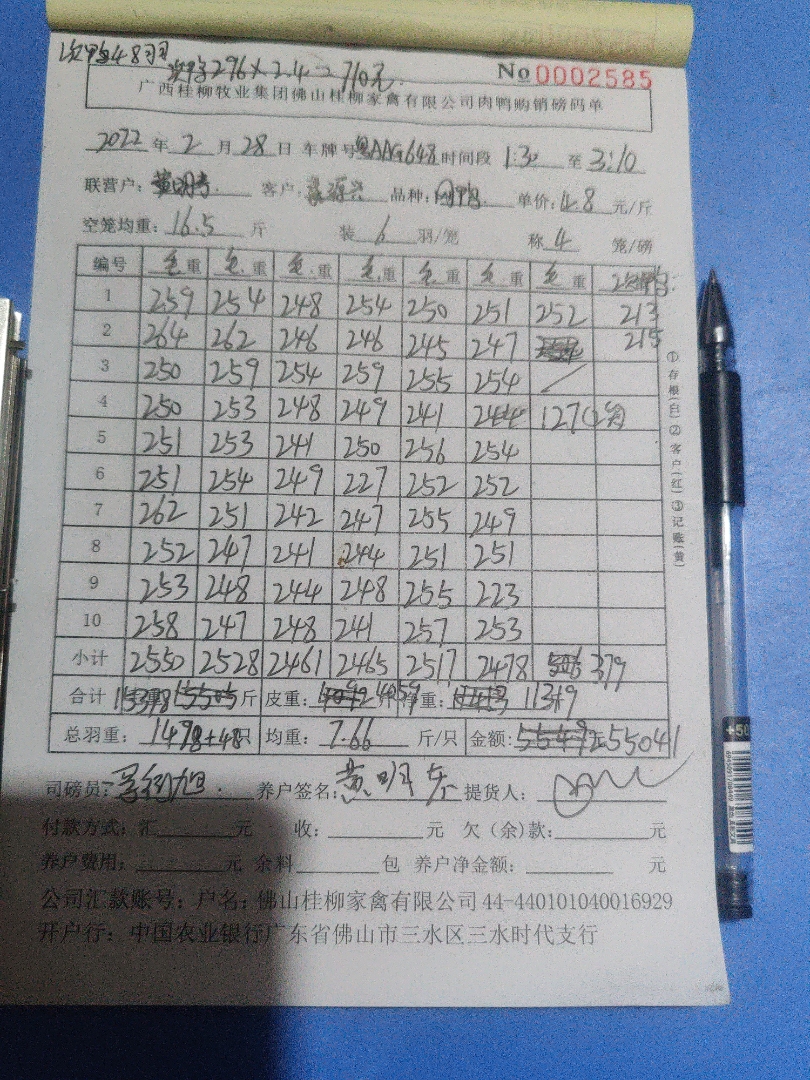 次鸭48羽
次鸭296×2.4=710元.
No 0002585
广西桂柳牧业集团佛山桂柳家禽有限公司肉鸭购销磅码单
2022年2月28日 车牌号粤AAG648时间段 1:30 至 3:10
联营户: 黄明寿 客户: 源兴 品种: 肉鸭 单价: 4.8 元/斤
空笼均重: 16.5 斤 装 6 羽/笼 称 4 笼/磅
编号 毛重 毛重 毛重 毛重 毛重 毛重 毛重
1 259 254 248 254 250 251 252 213
2 264 262 246 246 245 247 215
3 250 259 254 259 255 254 /
4 250 253 248 249 241 244 127(2笼)
5 251 253 241 250 256 254
6 251 254 249 227 252 252
7 262 251 242 247 255 249
8 252 247 241 244 251 251
9 253 248 244 248 255 223
10 258 247 248 241 257 253
小计 2550 2528 2461 2465 2517 2478 379
合计 15378 斤 皮重: 4059 斤 净重: 11319
总羽重: 1478+48只 均重: 7.66 斤/只 金额: 元55041
司磅员: 养户签名: 黄明 提货人:
付款方式: 汇 元 收: 元 欠(余)款: 元
养户费用: 元 余料 包 养户净金额: 元
公司汇款账号: 户名: 佛山桂柳家禽有限公司 44-440101040016929
开户行: 中国农业银行广东省佛山市三水区三水时代支行
①存根(白)②客户(红)③记账(黄)